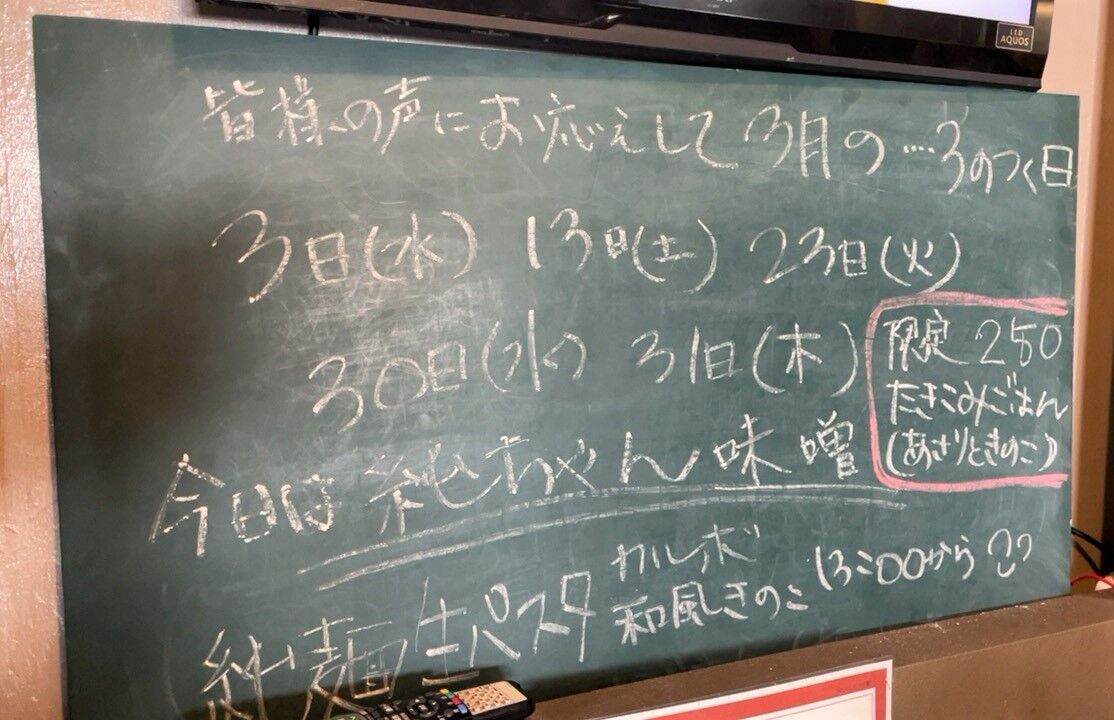 LED
AQUOS
皆様の声にお応えして3月の…3のつく日
3日(水) 13日(土) 23日(火)
30日(水) 31日(木)
限定 250
たきこみごはん
(あさりときのこ)
今日は純ちゃん味噌
純麺生パスタ
カルボ
和風きのこ
13:00から